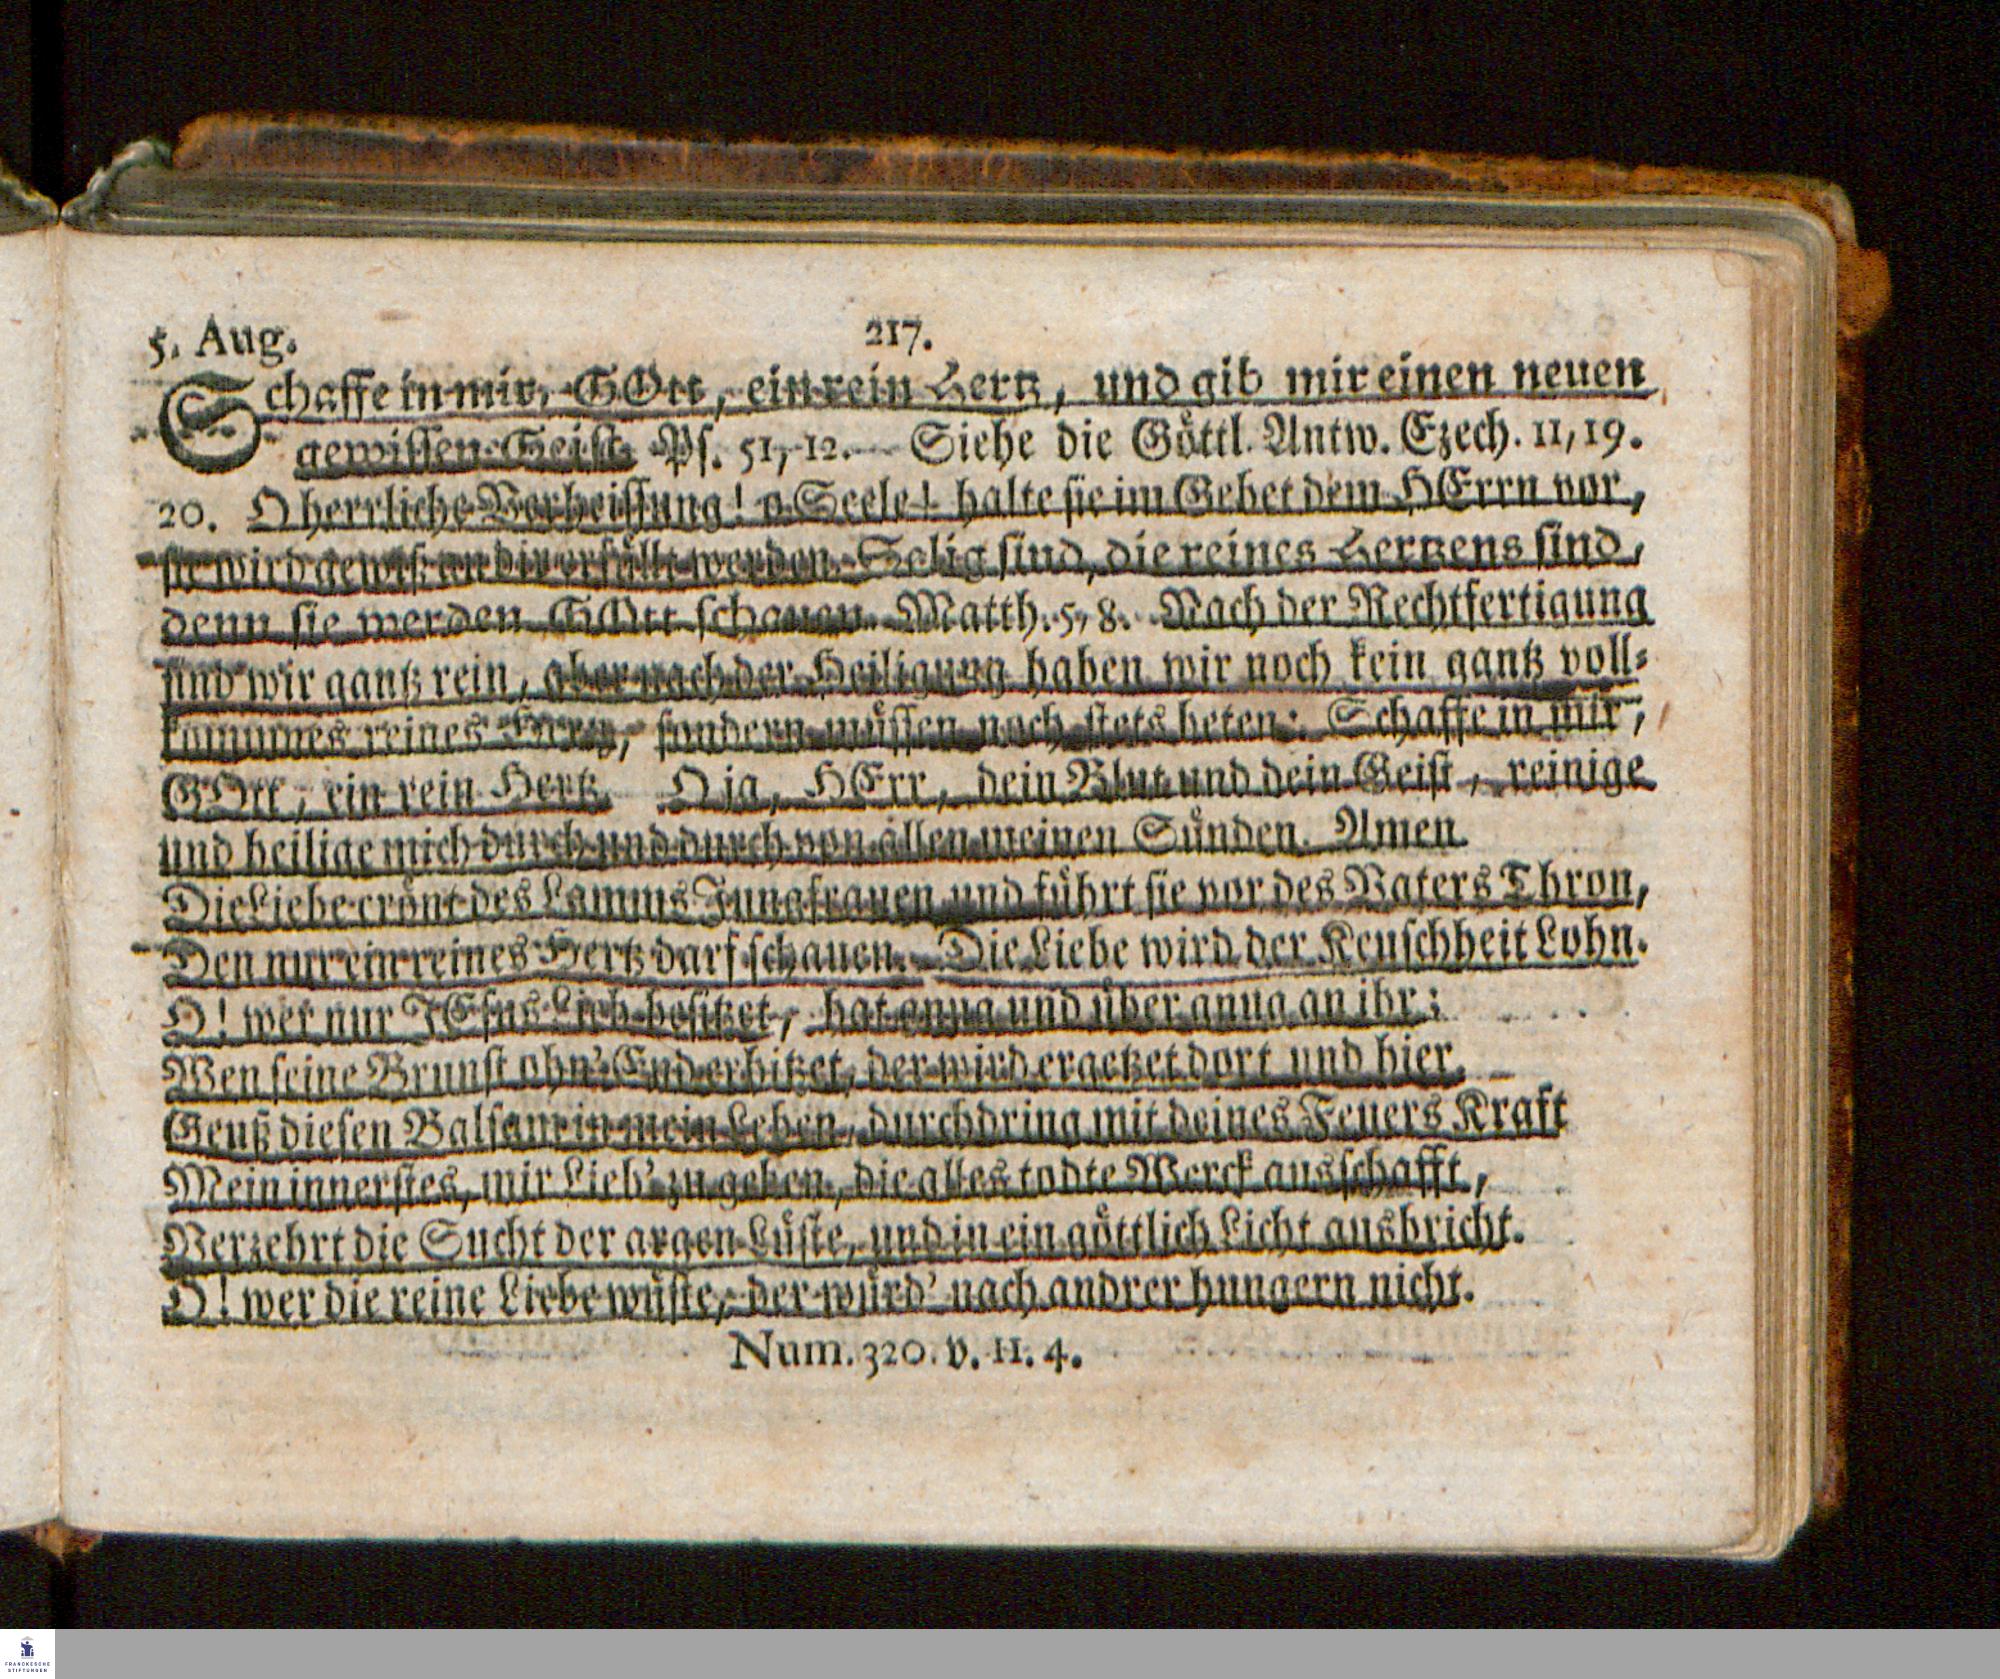 5. Aug. 217.
Schaffe in mir, GOtt, ein rein Hertz, und gib mir einen neuen
gewissen Geist. Ps. 51, 12. Siehe die Göttl. Antw. Ezech. 11, 19.
20. O herrliche Verheissung! o Seele! halte sie im Gebet dem HErrn vor,
sie wird gewiß an dir erfüllt werden. Selig sind, die reines Hertzens sind,
denn sie werden GOtt schauen. Matth. 5, 8. Nach der Rechtfertigung
sind wir gantz rein, aber nach der Heiligung haben wir noch kein gantz voll-
kommnes reines Hertz, sondern müssen noch stets beten: Schaffe in mir,
GOtt, ein rein Hertz. O ja, HErr, dein Blut und dein Geist, reinige
und heilige mich durch und durch von allen meinen Sünden. Amen
Die Liebe crönt des Lamms Jungfrauen und führt sie vor des Vaters Thron,
Den nur ein reines Hertz darf schauen. Die Liebe wird der Keuschheit Lohn.
O! wer nur JEsus Lieb besitzet, hat gnug und über gnug an ihr;
Wen seine Brunst ohn' End erhitzet, der wird ergetzet dort und hier.
Geuß diesen Balsam in mein Leben, durchdring mit deines Feuers Kraft
Mein innerstes, mir Lieb' zu geben, die alles todte Werck ausschafft,
Verzehrt die Sucht der argen Lüste, und in ein göttlich Licht ausbricht.
O! wer die reine Liebe wüste, der würd' nach andrer hungern nicht.
Num. 320. v. 11. 4.
FRANCKESCHE
STIFTUNGEN